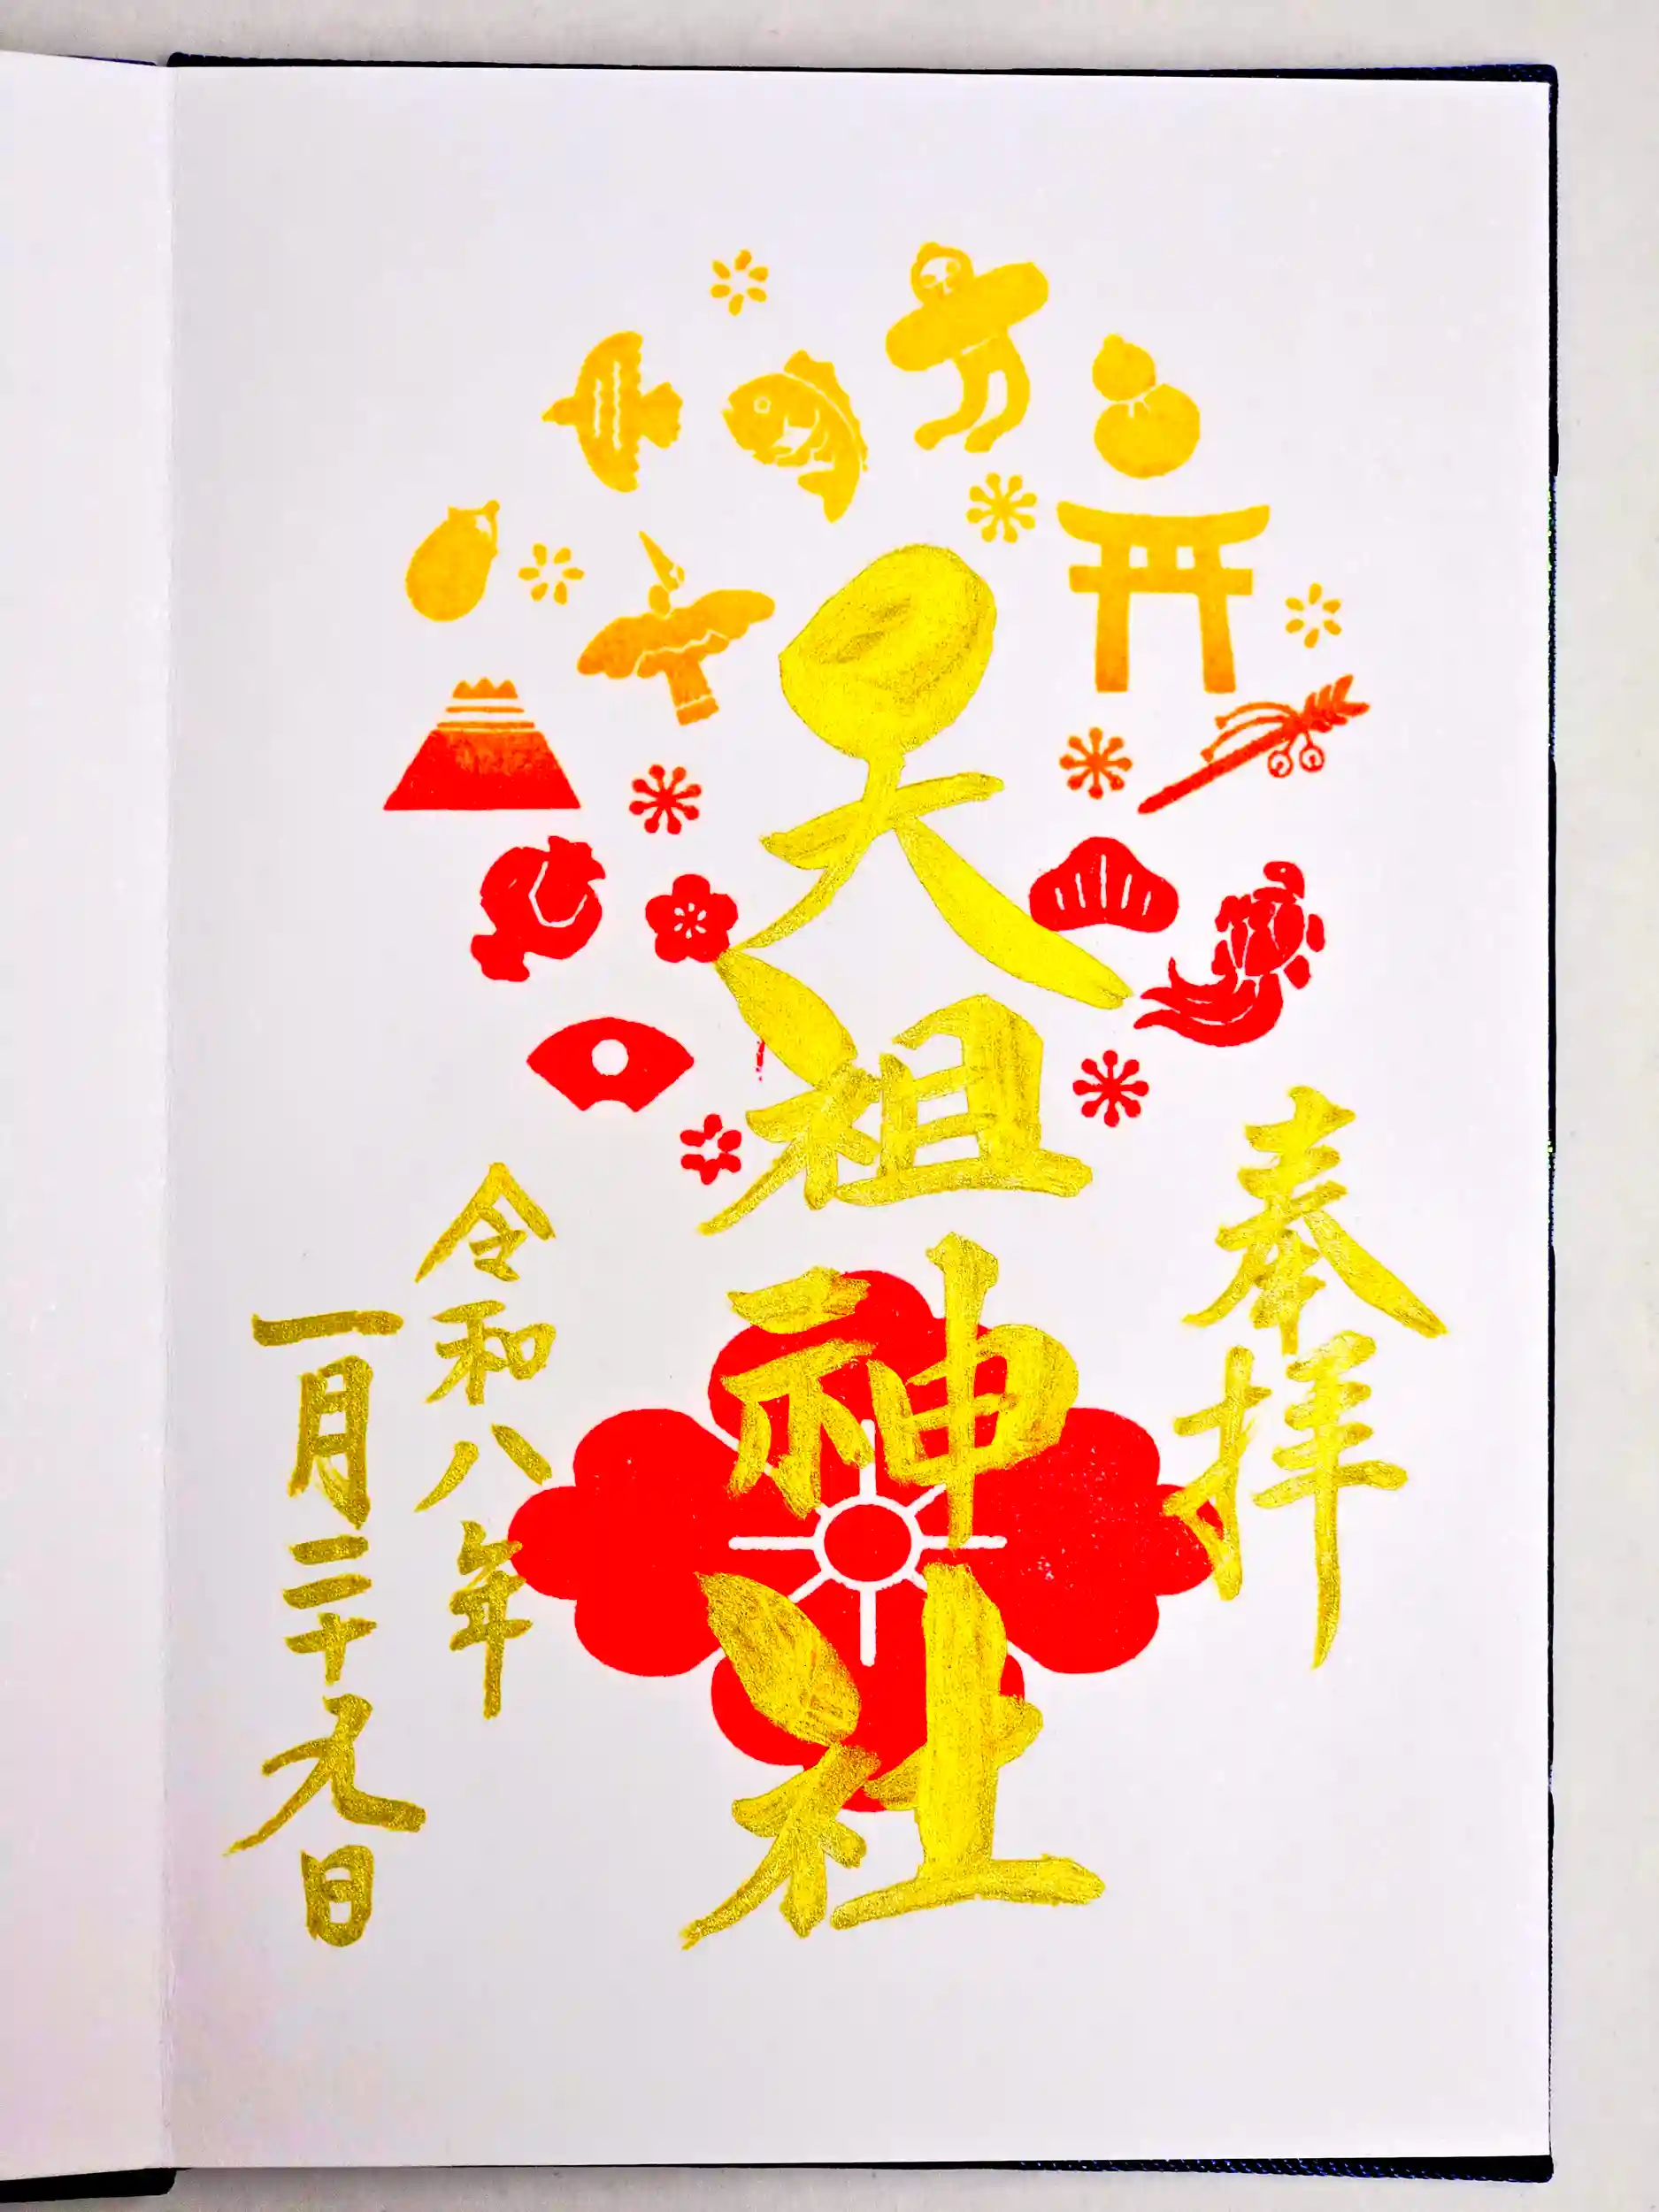 奉拝
天祖神社
令和八年
一月二十九日